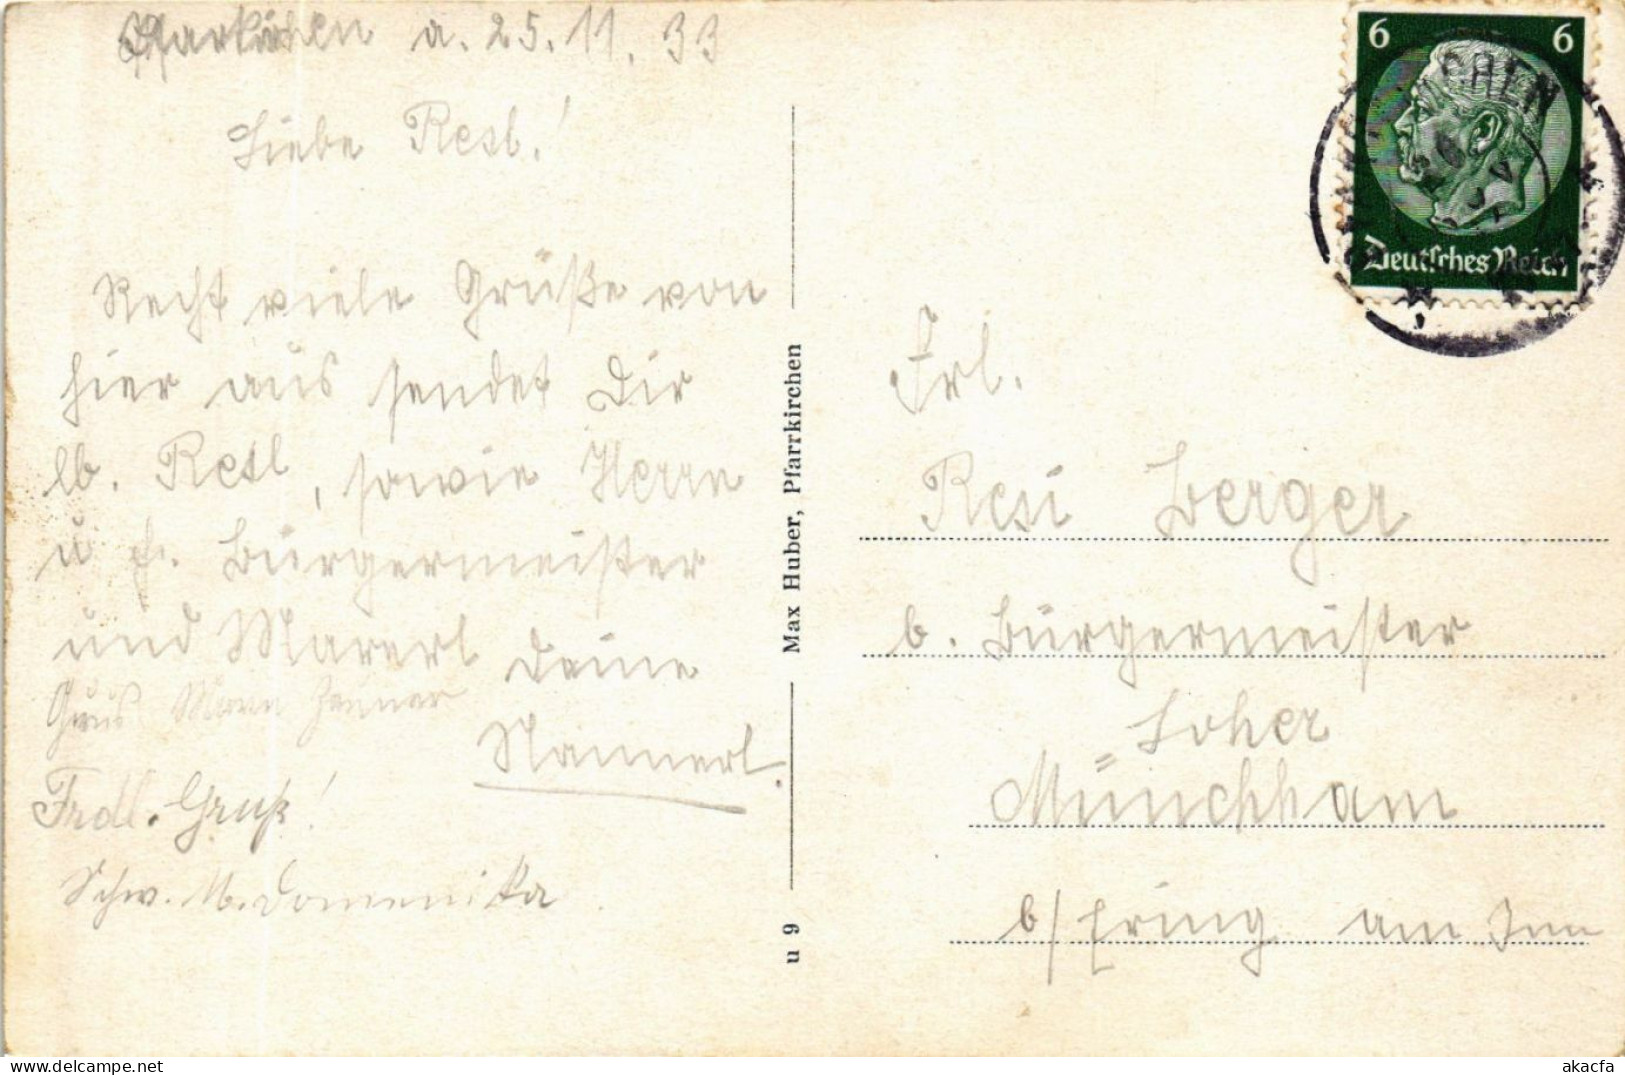 Pfarrkirchen a. 25.11.33
Liebe Resl!
Recht viele Grüße von
hier aus sendet Dir
lb. Resl, sowie Herrn
u. Fr. Bürgermeister
und Marerl Deine
Nannerl.
Gruß
Frdl. Gruß!
Schw. M. Domenika
Max Huber, Pfarrkirchen
u 9
6 6
Deutsches Reich
CHEN
Frl.
Resi Berger
b. Bürgermeister
Loher
Münchham
b/ Ering am Inn
akacfa